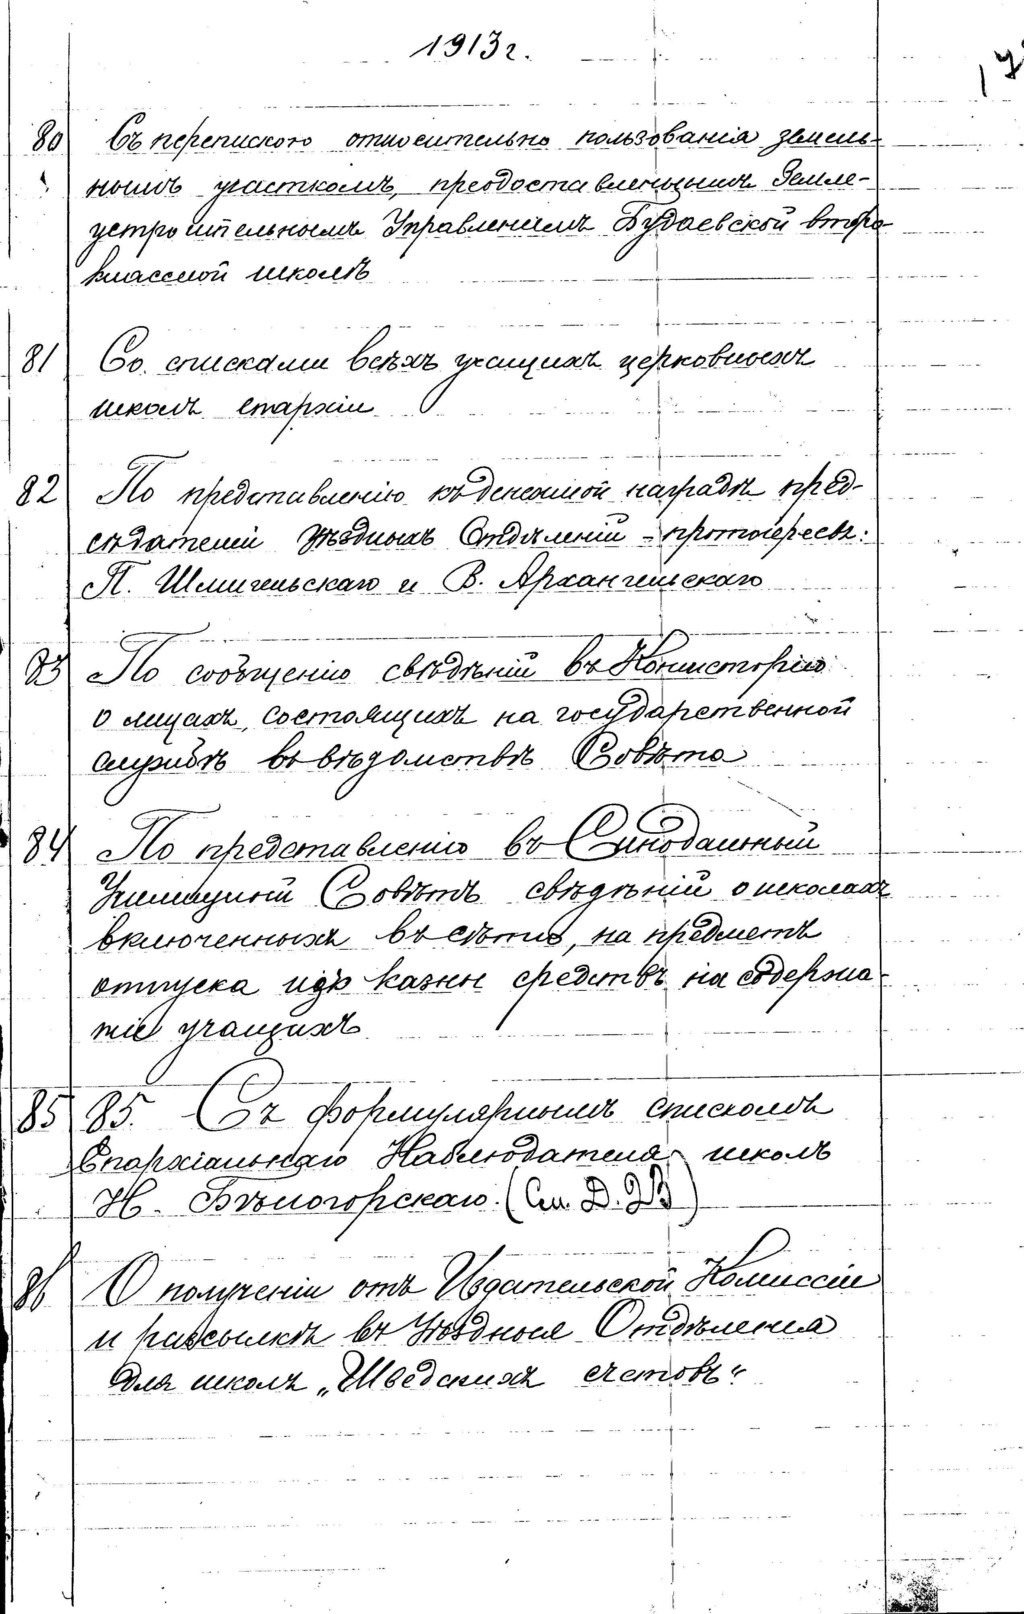 1913 г.
17
80 Съ перепискою относительно пользованія земель-
нымъ участкомъ, предоставленнымъ Земле-
устроительнымъ Управленіемъ Будаевской второ-
классной школѣ
81 Со списками всѣхъ учащихъ церковныхъ
школъ епархіи
82 По представленію къ денежной наградѣ пред-
сѣдателей Уѣздныхъ Отдѣленій - протоіереевъ:
П. Шмигельскаго и В. Архангельскаго
83 По сообщенію свѣдѣній въ Консисторію
о лицахъ, состоящихъ на государственной
службѣ въ вѣдомствѣ Совѣта
84 По представленію въ Синодальный
Училищный Совѣтъ свѣдѣній о школахъ
включенныхъ въ сѣть, на предметъ
отпуска изъ казны средствъ на содержа-
ніе учащихъ
85 85. Съ формулярнымъ спискомъ
Епархіальнаго Наблюдателя школъ
Н. Бѣлогорскаго. (См. Д. 23)
86 О полученіи отъ Издательской Комиссіи
и разсылкѣ въ Уѣздныя Отдѣленія
для школъ „Шведскихъ счетовъ“